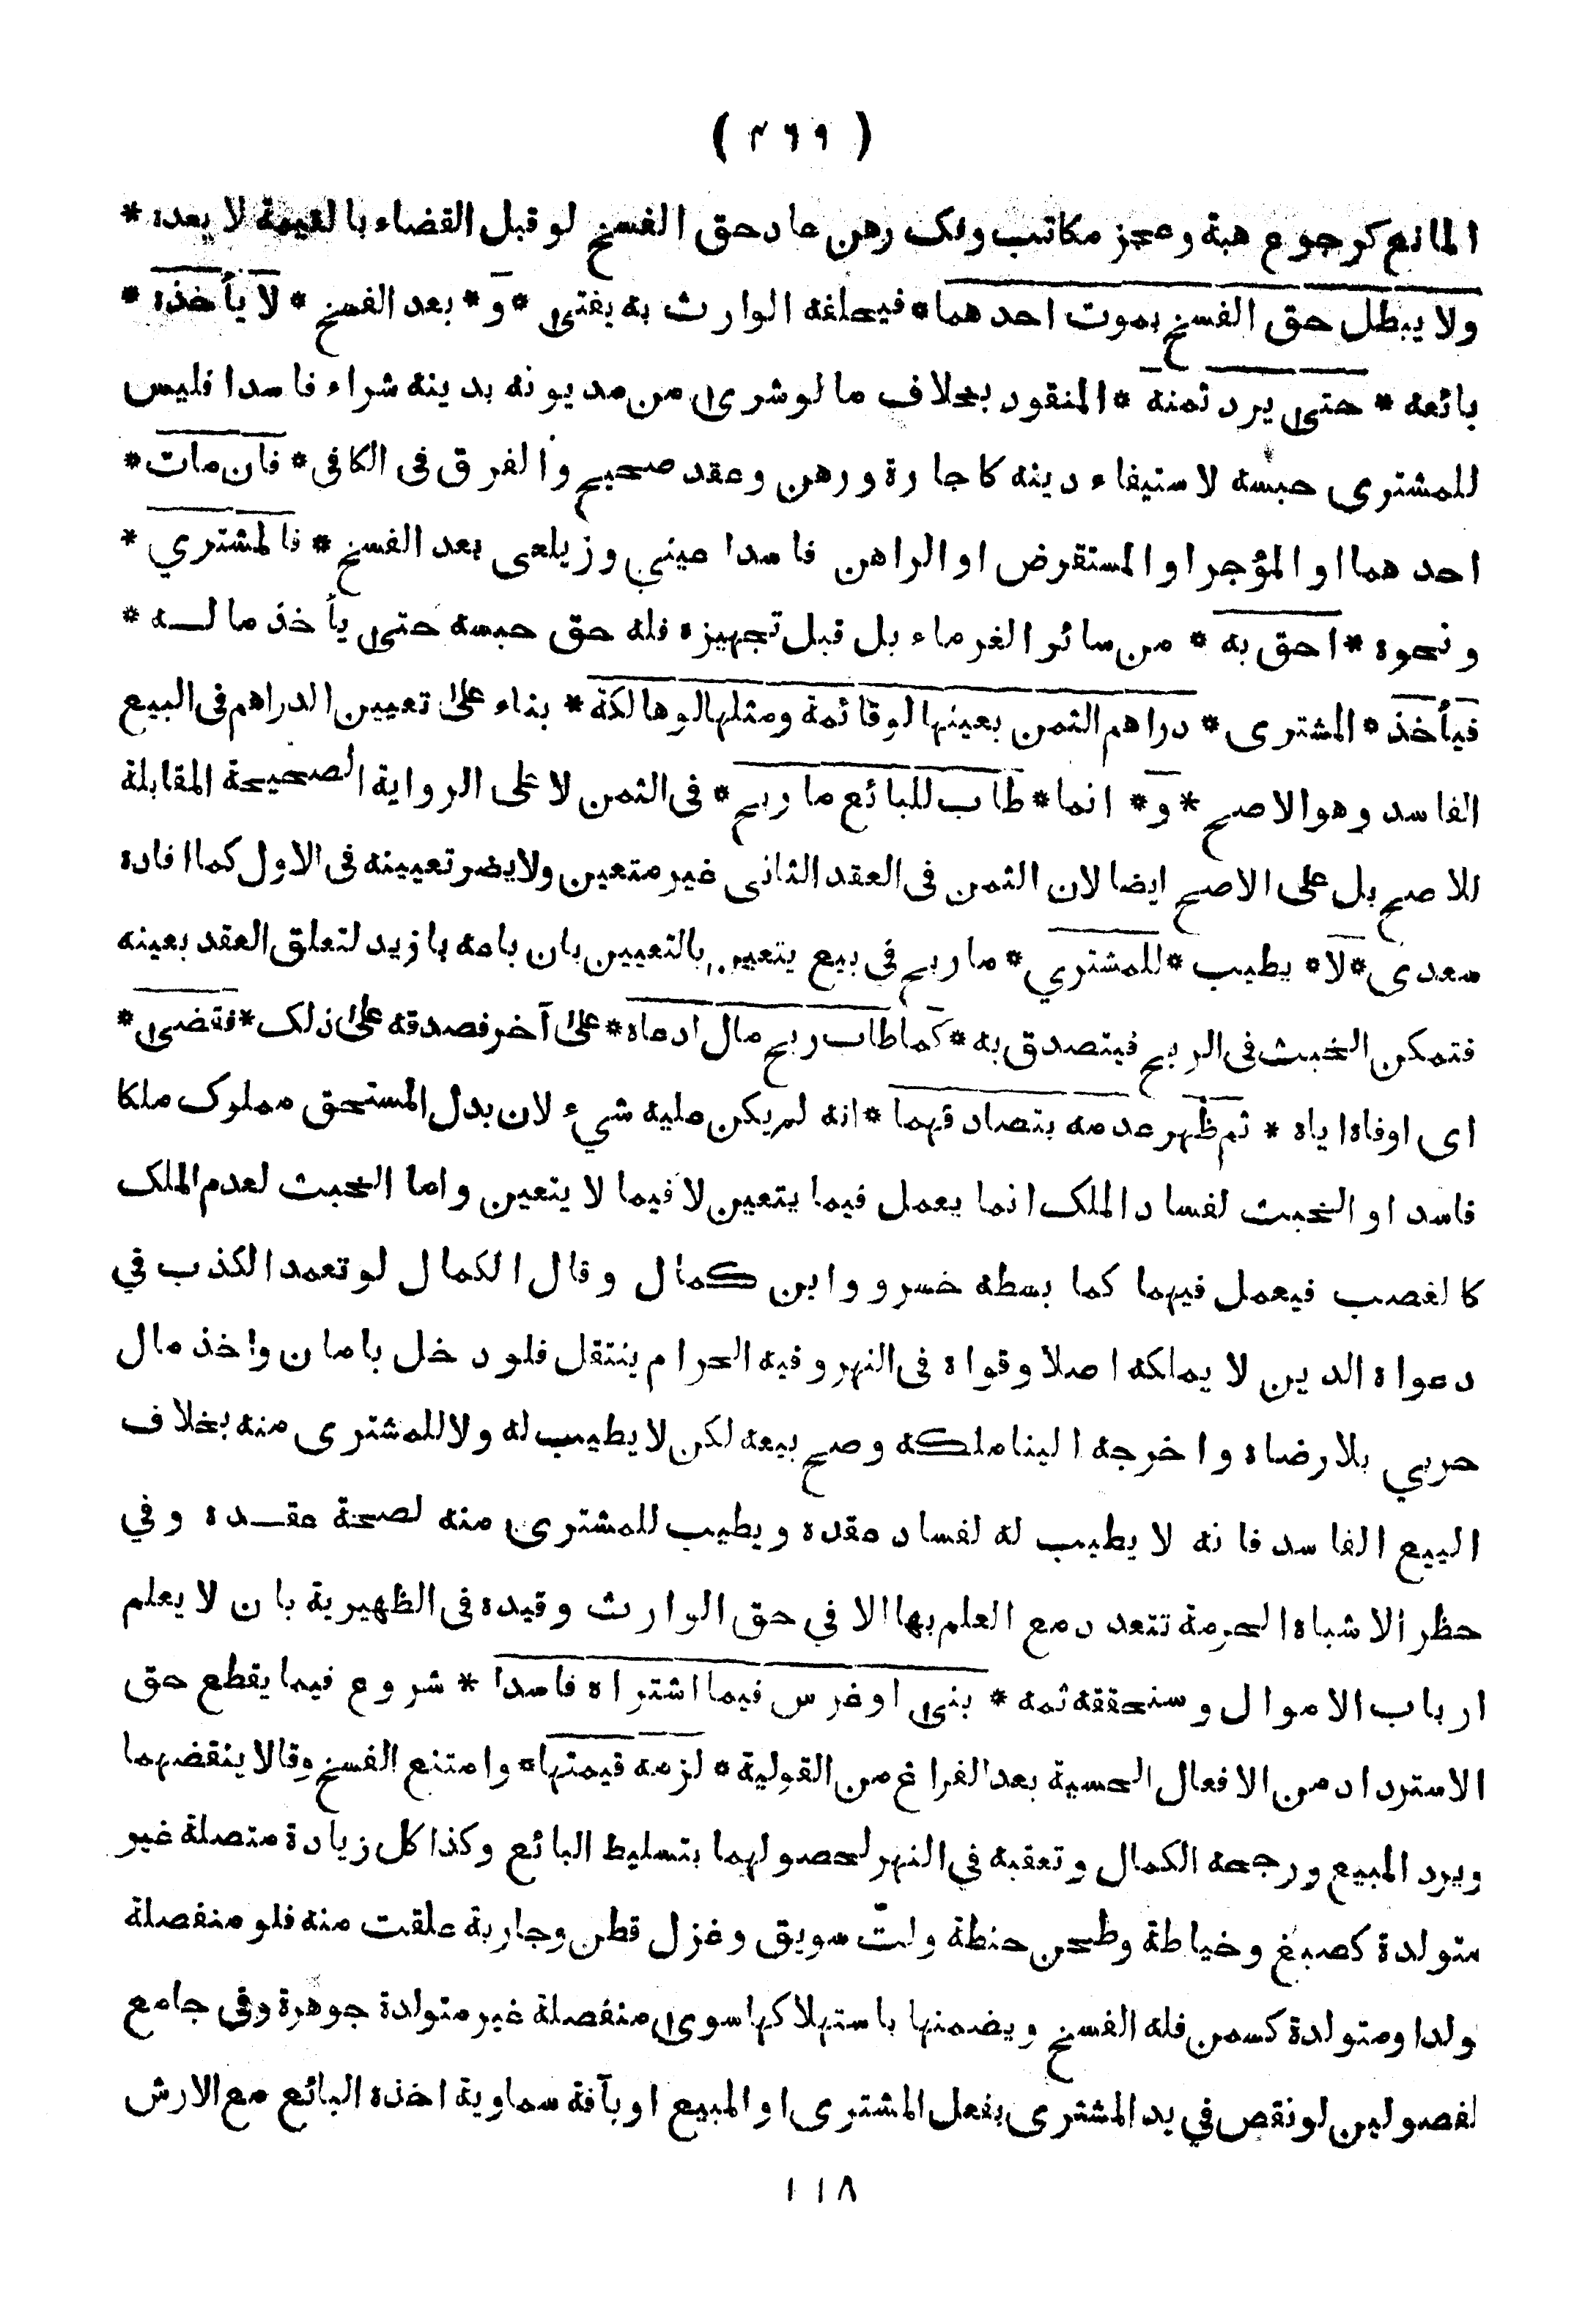 ( ٣٦٩ )
المانع كرجوع هبة وعجز مكاتب وفك رهن عاد حق الفسخ لو قبل القضاء بالقيمة لا بعده *
ولا يبطل حق الفسخ بموت احدهما * فيخلفه الوارث به يفتى * و * بعد الفسخ * لا يأخذه *
بائعه * حتى يرد ثمنه * المنقود بخلاف ما لو شرى من مديونه بدينه شراء فاسدا فليس
للمشترى حبسه لاستيفاء دينه كاجارة ورهن وعقد صحيح والفرق فى الكافى * فان مات *
احدهما او المؤجر او المستقرض او الراهن فاسدا عيني وزيلعى بعد الفسخ * فالمشتري *
ونحوه * احق به * من سائر الغرماء بل قبل تجهيزه فله حق حبسه حتى يأخذ ماله *
فيأخذ * المشترى * دراهم الثمن بعينها لو قائمة ومثلها لو هالكة * بناء على تعيين الدراهم فى البيع
الفاسد وهو الاصح * و * انما * طاب للبائع ما ربح * فى الثمن لا على الرواية الصحيحة المقابلة
للاصح بل على الاصح ايضا لان الثمن فى العقد الثانى غير متعين ولا يضر تعيينه فى الاول كما افاده
سعدى * لا * يطيب * للمشتري * ما ربح فى بيع يتعين بالتعيين بان باعه بازيد لتعلق العقد بعينه
فتمكن الخبث فى الربح فيتصدق به * كما طاب ربح مال ادعاه * على آخر فصدقه على ذلك * فقضى *
اى اوفاه اياه * ثم ظهر عدمه بتصادقهما * انه لم يكن عليه شيء لان بدل المستحق مملوك ملكا
فاسدا والخبث لفساد الملك انما يعمل فيما يتعين لا فيما لا يتعين واما الخبث لعدم الملك
كالغصب فيعمل فيهما كما بسطه خسرو وابن كمال وقال الكمال لو تعمد الكذب في
دعواه الدين لا يملكه اصلا وقواه فى النهر وفيه الحرام ينتقل فلو دخل بامان واخذ مال
حربي بلا رضاه واخرجه الينا ملكه وصح بيعه لكن لا يطيب له ولا للمشترى منه بخلاف
البيع الفاسد فانه لا يطيب له لفساد عقده ويطيب للمشترى منه لصحة عقده وفي
حظر الاشباه الحرمة تتعدد مع العلم بها الا في حق الوارث وقيده فى الظهيرية بان لا يعلم
ارباب الاموال وسنحققه ثمه * بنى او غرس فيما اشتراه فاسدا * شروع فيما يقطع حق
الاسترداد من الافعال الحسية بعد الفراغ من القولية * لزمه قيمتها * وامتنع الفسخ وقالا ينقضهما
ويرد المبيع ورجحه الكمال وتعقبه في النهر لحصولهما بتسليط البائع وكذا كل زيادة متصلة غير
متولدة كصبغ وخياطة وطحن حنطة ولتّ سويق وغزل قطن وجارية علقت منه فلو منفصلة
ولدا ومتولدة كسمن فله الفسخ ويضمنها باستهلاكها سوى منفصلة غير متولدة جوهرة وفى جامع
لفصولين لو نقص في يد المشترى بفعل المشترى او المبيع او بآفة سماوية اخذه البائع مع الارش
١١٨